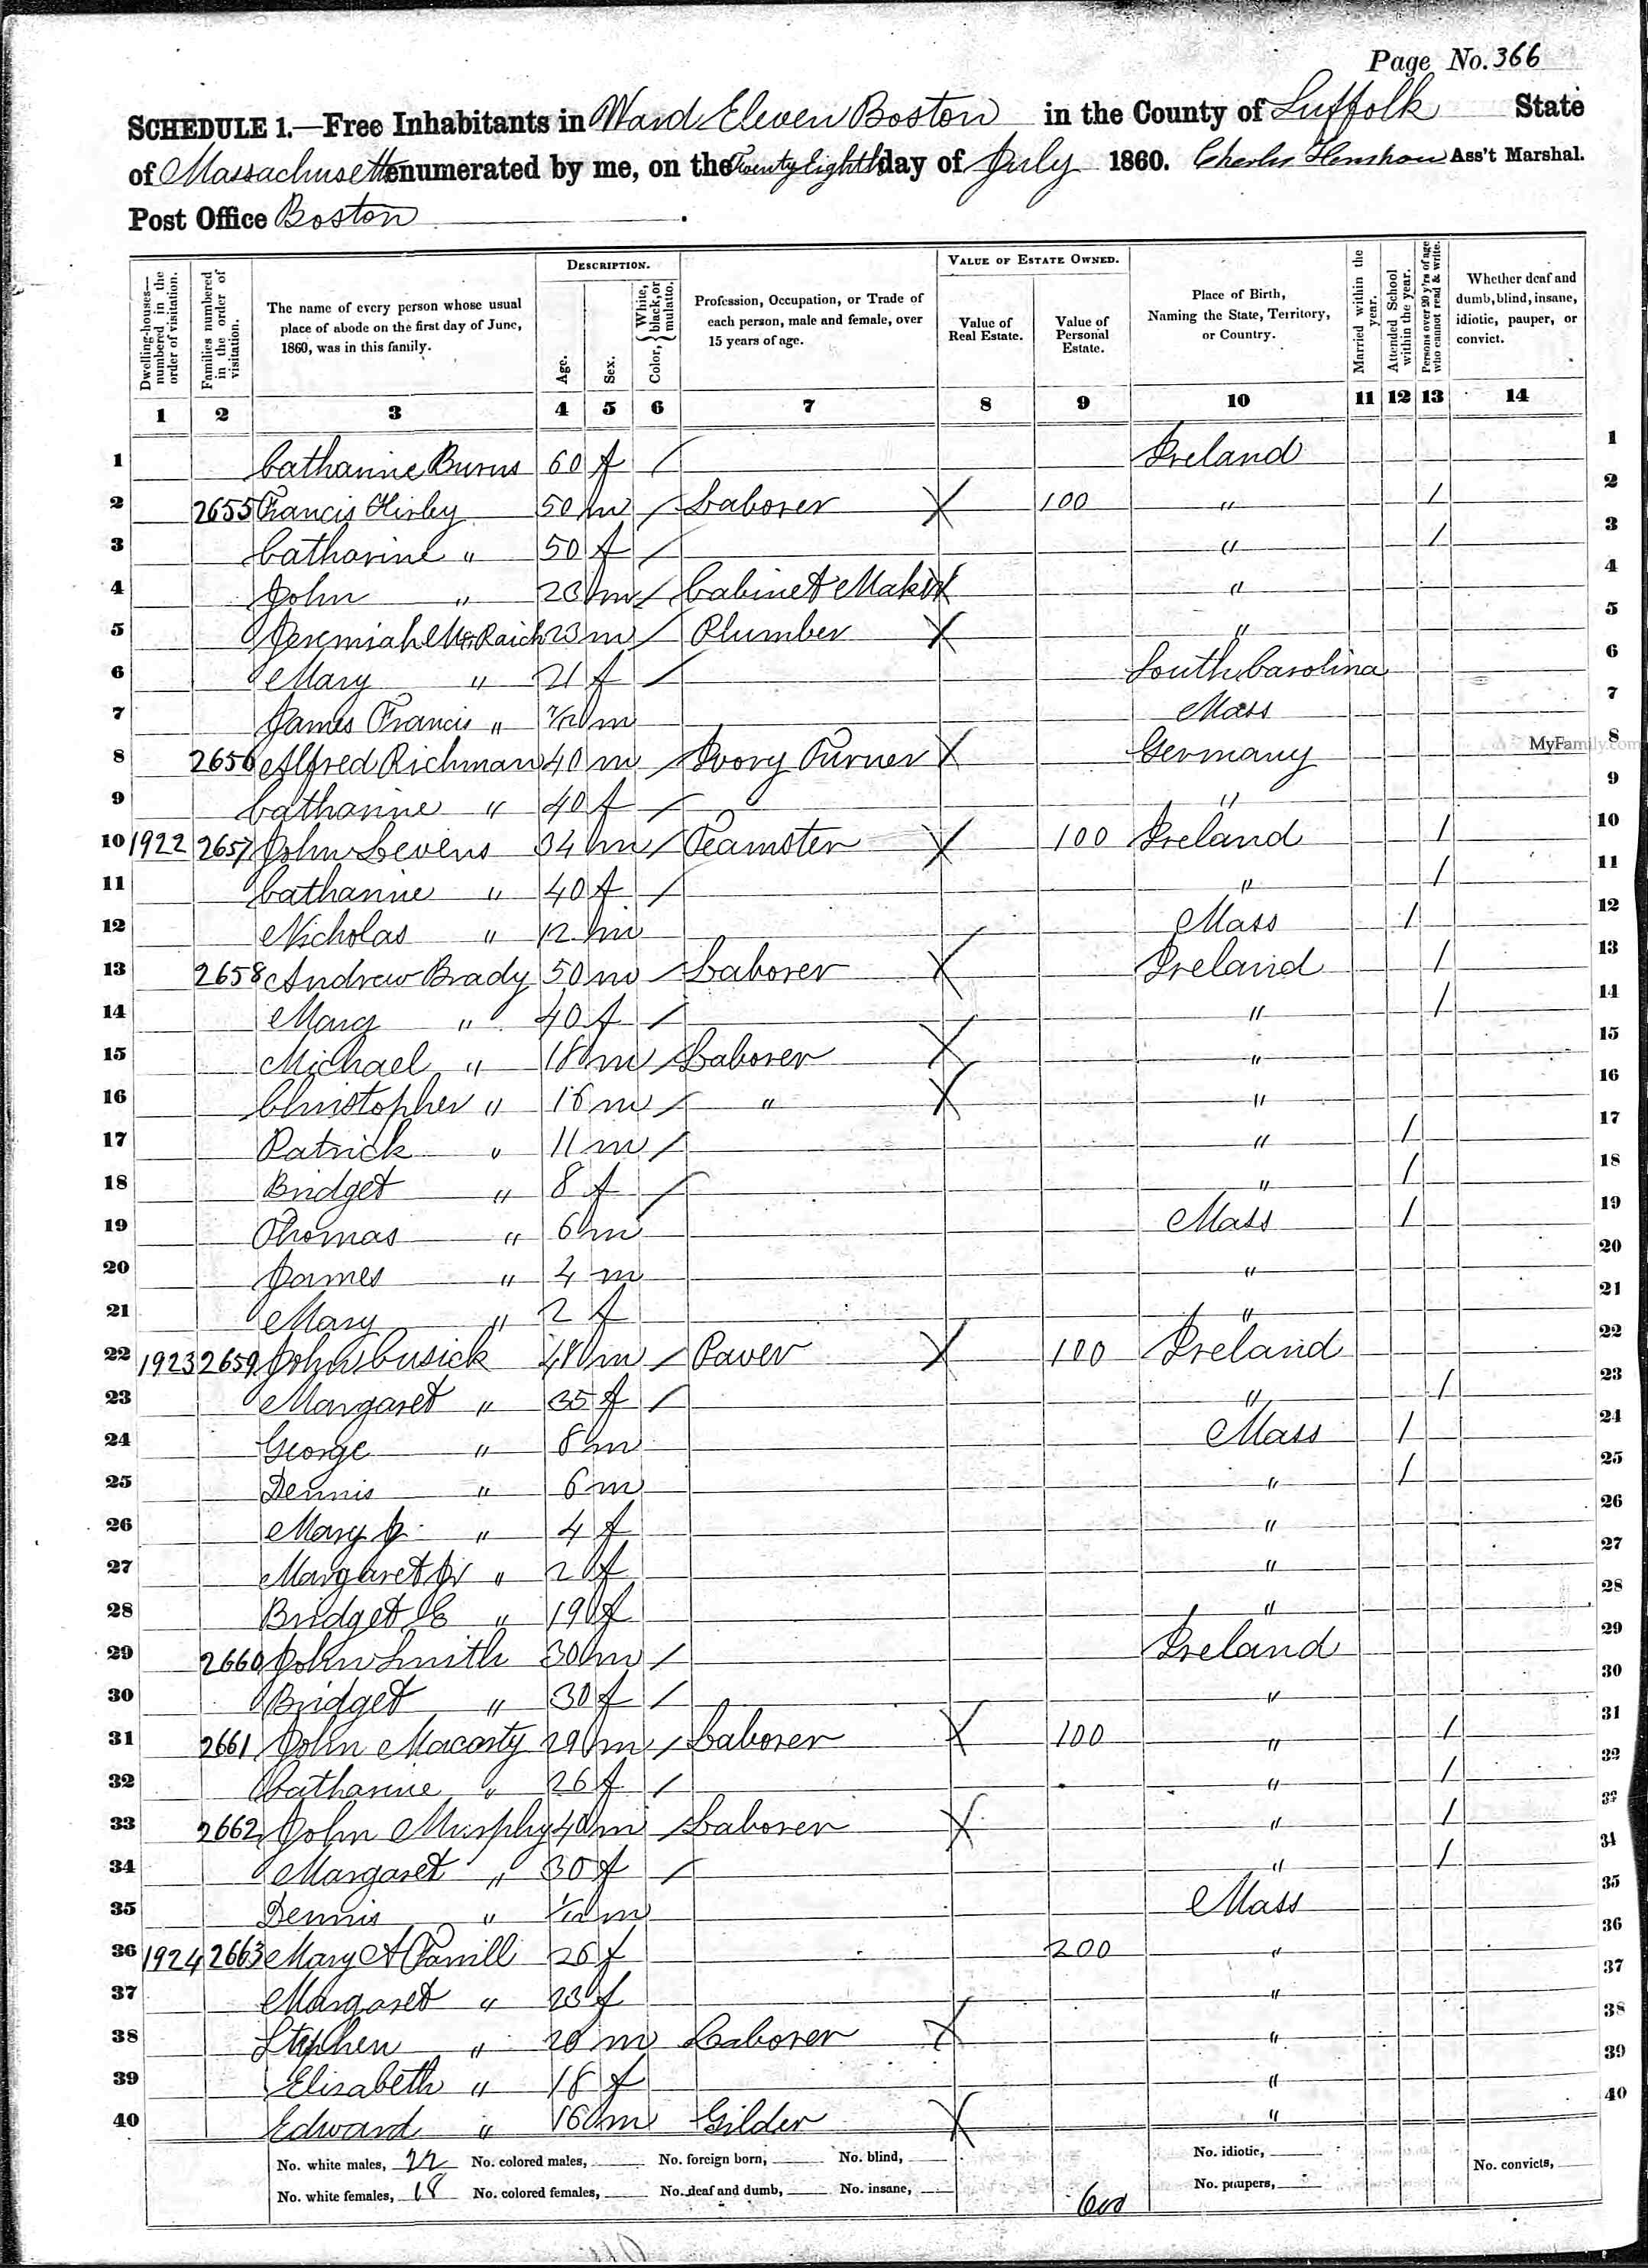 Page No. 366
SCHEDULE 1.—Free Inhabitants in Ward Eleven Boston in the County of Suffolk State
of Massachusetts enumerated by me, on the Twenty Eighth day of July 1860. Charles Henshaw Ass't Marshal.
Post Office Boston.
DESCRIPTION. VALUE OF ESTATE OWNED.
Dwelling-houses—numbered in the order of visitation. Families numbered in the order of visitation. The name of every person whose usual place of abode on the first day of June, 1860, was in this family. Age. Sex. Color, { White, black, or mulatto. Profession, Occupation, or Trade of each person, male and female, over 15 years of age. Value of Real Estate. Value of Personal Estate. Place of Birth, Naming the State, Territory, or Country. Married within the year. Attended School within the year. Persons over 20 y'rs of age who cannot read & write. Whether deaf and dumb, blind, insane, idiotic, pauper, or convict.
1 2 3 4 5 6 7 8 9 10 11 12 13 14
1 Catharine Burns 60 f / Ireland 1
2 2655 Francis Kirby 50 m / Laborer X 100 " / 2
3 Catharine " 50 f / " / 3
4 John " 23 m / Cabinet Maker X " 4
5 Jeremiah 23 m / Plumber X " 5
6 Mary " 21 f / South Carolina 6
7 James Francis " 7/12 m Mass 7
8 2656 Alfred Richman 40 m / Ivory Turner X Germany 8
MyFamily.com
9 Catharine " 40 f / " 9
10 1922 2657 John Levens 34 m / Teamster X 100 Ireland / 10
11 Catharine " 40 f / " / 11
12 Nicholas " 12 m Mass / 12
13 2658 Andrew Brady 50 m / Laborer X Ireland / 13
14 Mary " 40 f / " / 14
15 Michael " 18 m / Laborer X " 15
16 Christopher " 16 m / " X " 16
17 Patrick " 11 m / " / 17
18 Bridget " 8 f / " / 18
19 Thomas " 6 m Mass / 19
20 James " 4 m " 20
21 Mary " 2 f " 21
22 1923 2659 John Cusick 48 m / Paver X 100 Ireland 22
23 Margaret " 35 f / " / 23
24 George " 8 m Mass / 24
25 Dennis " 6 m " / 25
26 Mary J. " 4 f " 26
27 Margaret Jr " 2 f " 27
28 Bridget E " 19 f " 28
29 2660 John Smith 30 m / Ireland 29
30 Bridget " 30 f / " 30
31 2661 John Macarty 29 m / Laborer X 100 " / 31
32 Catharine " 26 f / " / 32
33 2662 John Murphy 40 m / Laborer X " / 33
34 Margaret " 30 f / " / 34
35 Dennis " 1/12 m Mass 35
36 1924 2663 Mary A 26 f 200 " 36
37 Margaret " 23 f " 37
38 Stephen " 20 m Laborer X " 38
39 Elisabeth " 18 f " 39
40 Edward " 16 m Gilder X " 40
No. white males, 22 No. colored males, No. foreign born, No. blind, No. idiotic, No. convicts,
No. white females, 18 No. colored females, No. deaf and dumb, No. insane, 600 No. paupers,